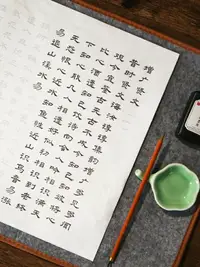 增廣賢文
昔時賢文誨汝諄諄集韵增廣多見多聞
觀今宜鑒古无古不成今知己知彼將心
比心酒逢知己飲詩向會人吟相識滿天
下知心能几人相逢好似初相識到老終
无怨恨心近水知魚性近山識鳥音易漲
易退山溪水易